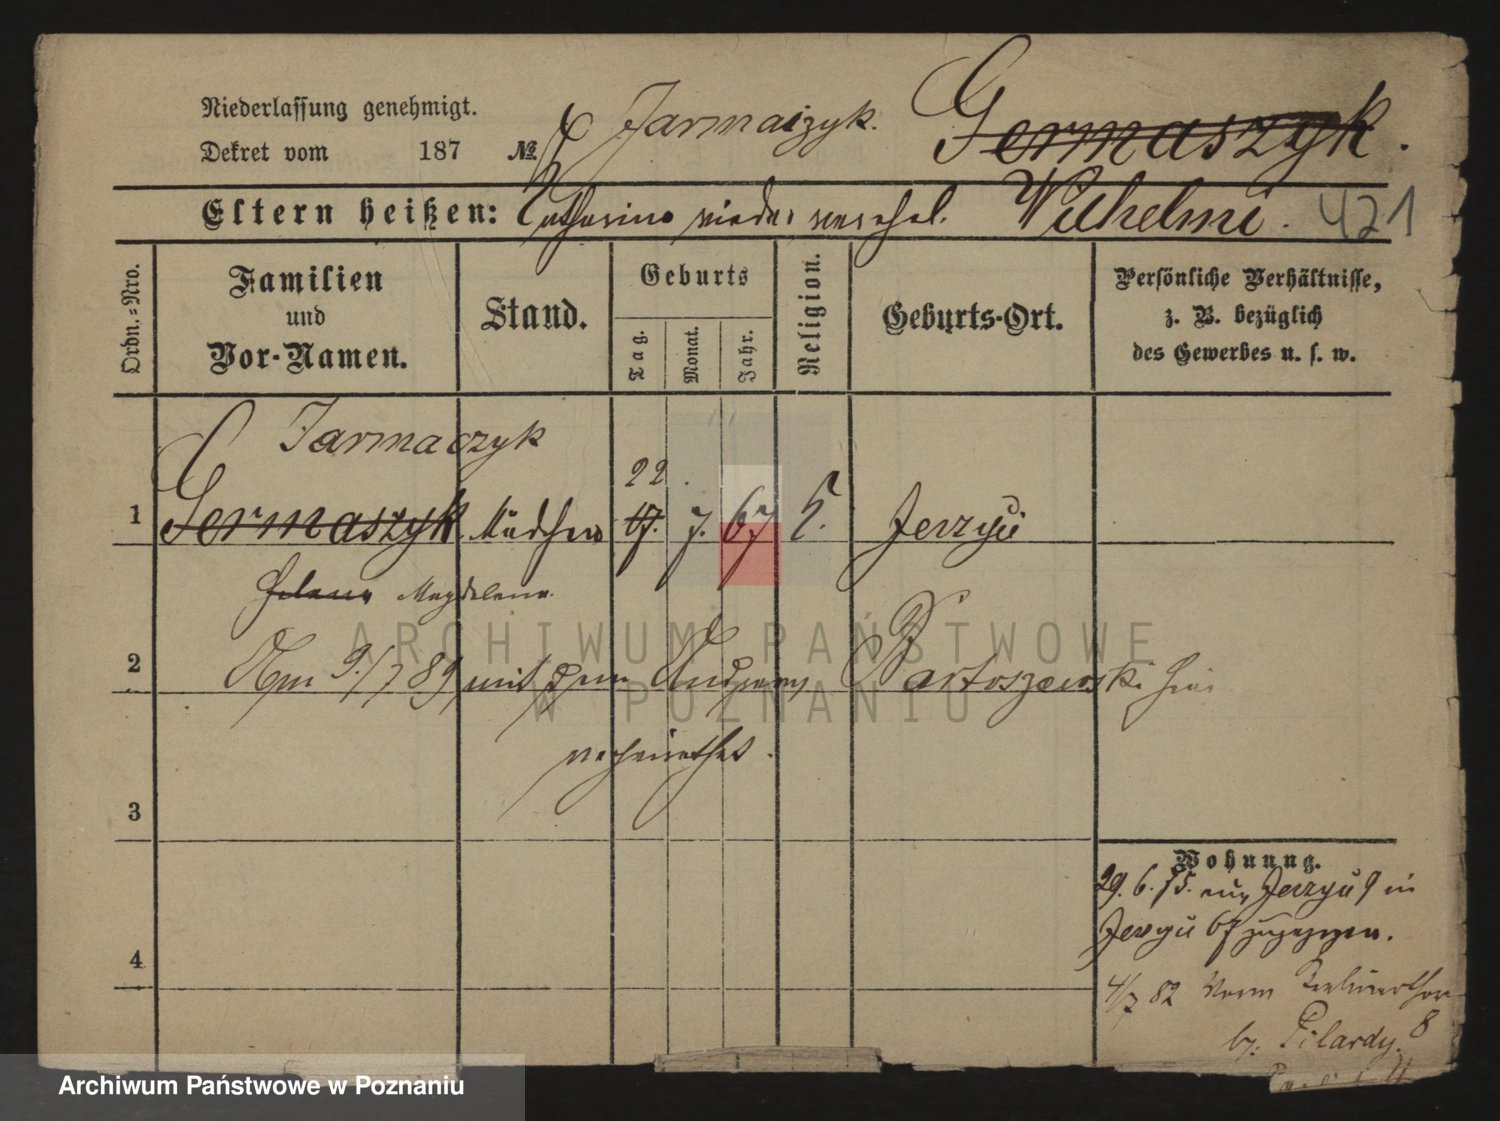 Niederlassung genehmigt.
Jarmaczyk. Germaszyk.
Dekret vom 187 №
Eltern heißen: Catharina wieder verehel. Wilhelmi. 421
Ordn.=Nro.
Familien
und
Vor-Namen.
Stand.
Geburts
Tag.
Monat.
Jahr.
Religion.
Geburts-Ort.
Persönliche Verhältnisse,
z. B. bezüglich
des Gewerbes u. s. w.
Jarmaczyk
22
1 Germaszyk Mädchen 17. 7. 67 k. Jerzyü
Helena Magdalena
2 Am 9/7 89 mit dem Andreas Bartoszewski hier
verheirathet.
3
Wohnung.
29. 6. 75. aus Jerzyü 9 in
Jerzyü 67 zugezogen.
4
4/7 82 Vorm Berlinerthor
8
bz. Pilardy.
ARCHIWUM PAŃSTWOWE
W POZNANIU
Archiwum Państwowe w Poznaniu